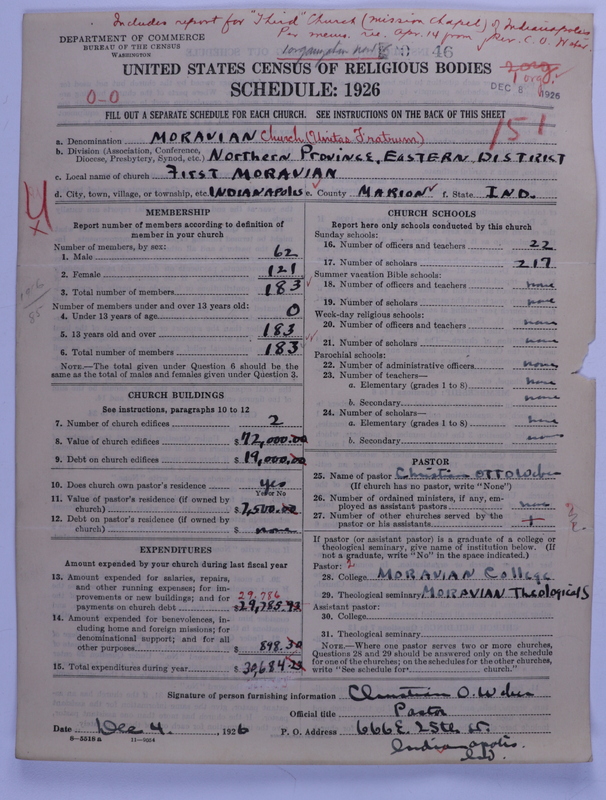 Includes report for "Third" Church (mission chapel) of Indianapolis
Per memo. rec. Apr. 14 from Rev. C. O. Weber.
DEPARTMENT OF COMMERCE
BUREAU OF THE CENSUS
WASHINGTON
46
UNITED STATES CENSUS OF RELIGIOUS BODIES
1 org.
SCHEDULE: 1926
DEC 8 1926
0-0
FILL OUT A SEPARATE SCHEDULE FOR EACH CHURCH. SEE INSTRUCTIONS ON THE BACK OF THIS SHEET
151
a. Denomination MORAVIAN Church (Unitas Fratrum)
b. Division (Association, Conference, Diocese, Presbytery, Synod, etc.) NORTHERN PROVINCE, EASTERN DISTRICT
c. Local name of church FIRST MORAVIAN
d. City, town, village, or township, etc. INDIANAPOLIS e. County MARION f. State IND.
MEMBERSHIP
Report number of members according to definition of
member in your church
Number of members, by sex:
1. Male 62
2. Female 121
3. Total number of members 183
Number of members under and over 13 years old:
4. Under 13 years of age 0
5. 13 years old and over 183
6. Total number of members 183
NOTE.—The total given under Question 6 should be
same as the total of males and females given under Question 3.
CHURCH BUILDINGS
See instructions, paragraphs 10 to 12
7. Number of church edifices 2
8. Value of church edifices $72,000.00
9. Debt on church edifices $19,000.00
10. Does church own pastor's residence yes
Yes or No
11. Value of pastor's residence (if owned by
church) $7,500.00
12. Debt on pastor's residence (if owned by
church) $ none
EXPENDITURES
Amount expended by your church during last fiscal year
13. Amount expended for salaries, repairs,
and other running expenses; for im-
provements or new buildings; and for 29,786
payments on church debt $29,785.93
14. Amount expended for benevolences, in-
cluding home and foreign missions; for
denominational support; and for all
other purposes $ 898.30
15. Total expenditures during year $ 30,684.23
CHURCH SCHOOLS
Report here only schools conducted by this church
Sunday schools:
16. Number of officers and teachers 22
17. Number of scholars 217
Summer vacation Bible schools:
18. Number of officers and teachers none
19. Number of scholars none
Week-day religious schools:
20. Number of officers and teachers none
21. Number of scholars none
Parochial schools:
22. Number of administrative officers none
23. Number of teachers—
a. Elementary (grades 1 to 8) none
b. Secondary none
24. Number of scholars—
a. Elementary (grades 1 to 8) none
b. Secondary none
PASTOR
25. Name of pastor Christian OTTO Weber
(If church has no pastor, write "None")
26. Number of ordained ministers, if any, em-
ployed as assistant pastors none
27. Number of other churches served by the
pastor or his assistants 1
If pastor (or assistant pastor) is a graduate of a college or
theological seminary, give name of institution below. (If
not a graduate, write "No" in the space indicated.)
Pastor: 2
28. College MORAVIAN COLLEGE
29. Theological seminary MORAVIAN THEOLOGICAL S
Assistant pastor:
30. College
31. Theological seminary
NOTE.—Where one pastor serves two or more churches,
Questions 28 and 29 should be answered only on the schedule
for one of the churches; on the schedules for the other churches,
write "See schedule for church."
Signature of person furnishing information Christian O. Weber
Official title Pastor
Date Dec 4, 1926 P. O. Address 666 E. 25th St.
Indianapolis.
Ind.
8—5518a 11—9064